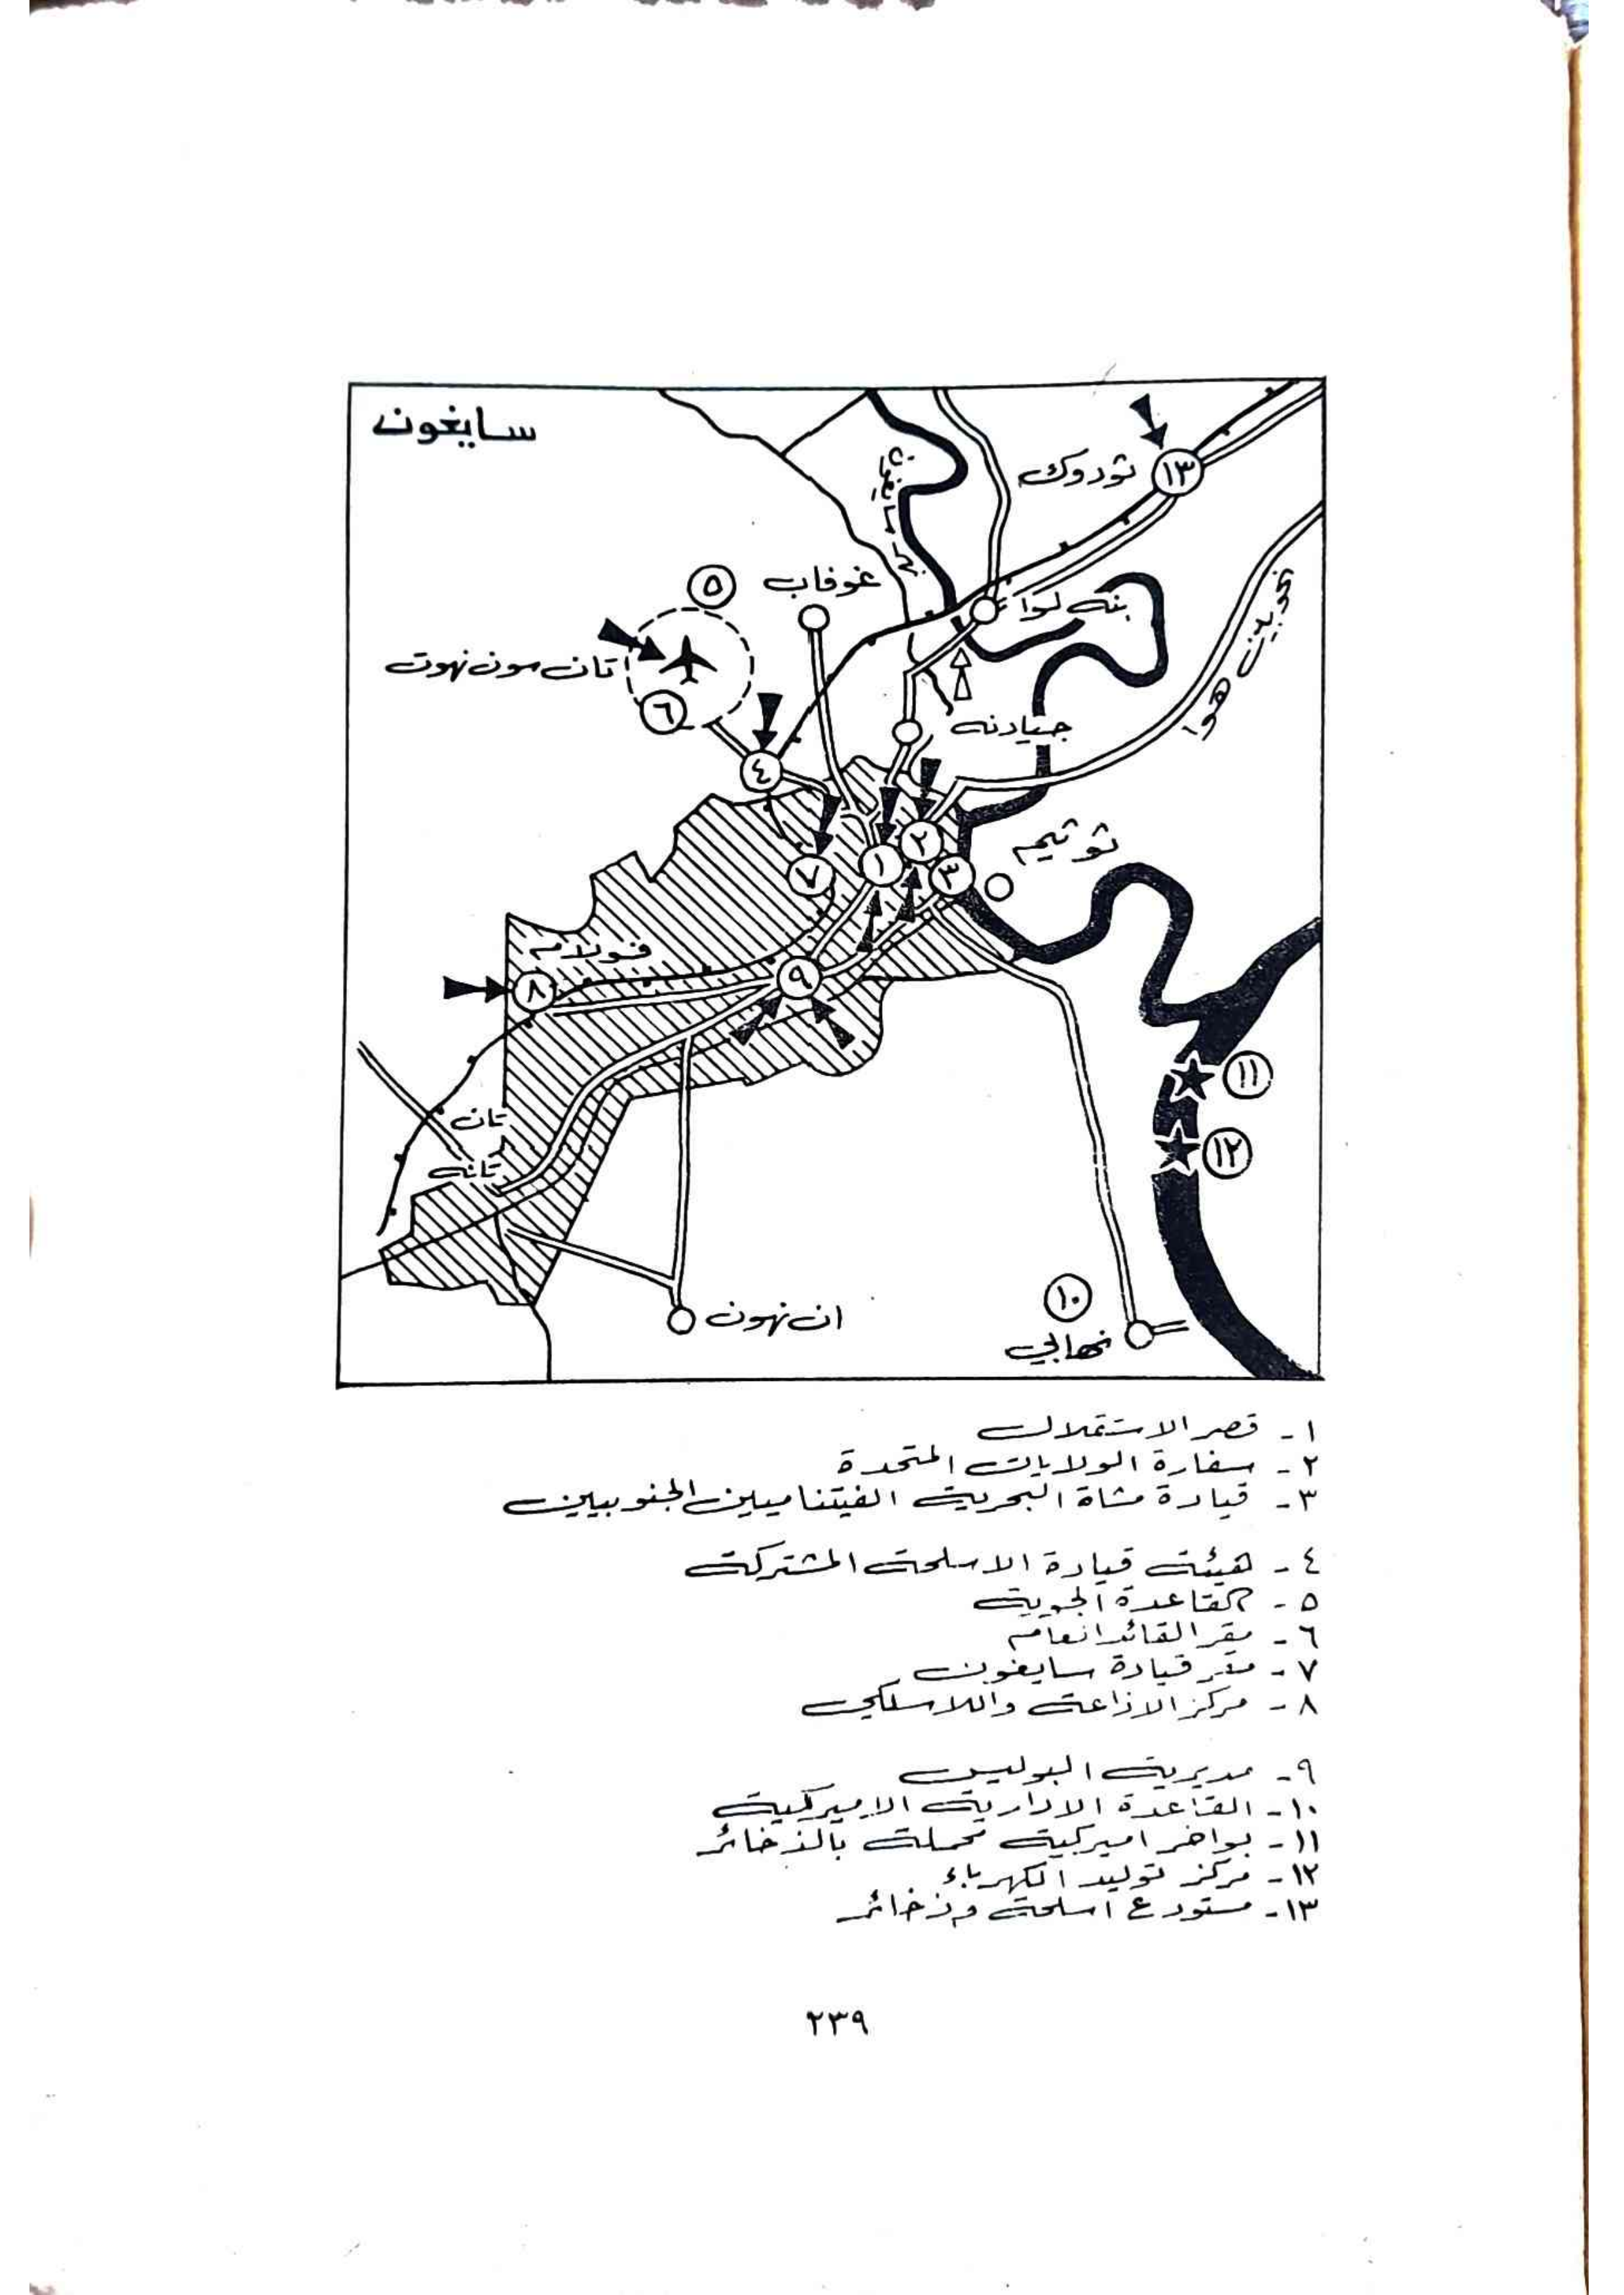 سايغون
ثودوك
١٣
نهر سايغون
٥
غوفاب
بنه لواء
تان سون نهوت
٦
جيادنه
هوا
٤
ثوثيم
٢
١
٣
٧
فولام
٩
٨
١١
تان
١٢
تانه
١٠
ان نهون
نهابي
١- قصر الاستقلال
٢- سفارة الولايات المتحدة
٣- قيادة مشاة البحرية الفيتناميين الجنوبيين
٤- هيئة قيادة الاسلحة المشتركة
٥- القاعدة الجوية
٦- مقر القائد العام
٧- مقر قيادة سايغون
٨- مركز الاذاعة واللاسلكي
٩- مديرية البوليس
١٠- القاعدة الادارية الاميركية
١١- بواخر اميركية محملة بالذخائر
١٢- مركز توليد الكهرباء
١٣- مستودع اسلحة وذخائر
٢٣٩